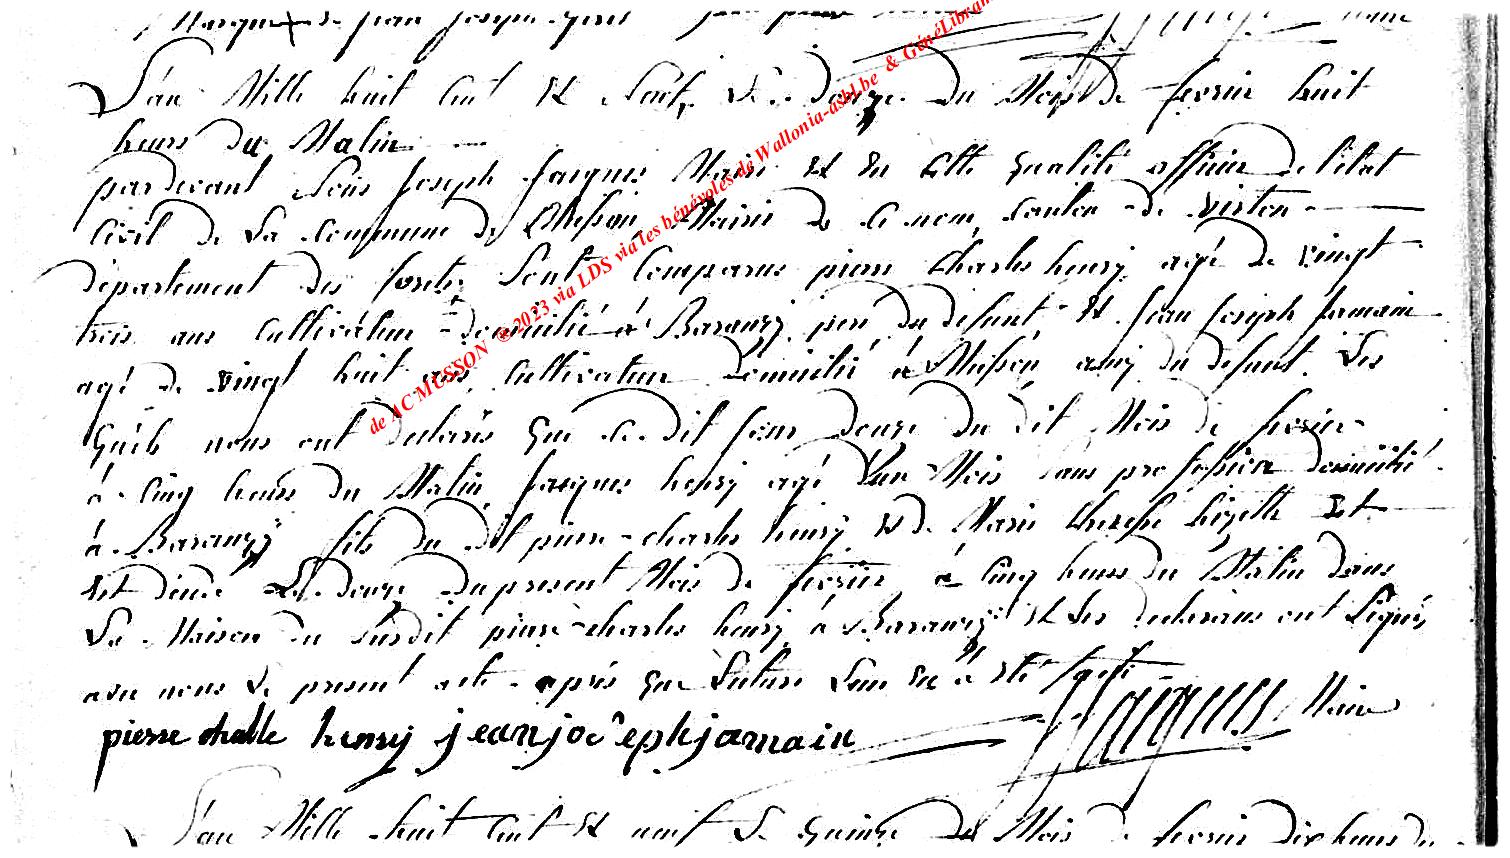 Marque x de jean joseph
L'an Mille huit Cent Et Sept, Le douze du Mois de fevrier huit
heures du Matin
pardevant Nous joseph jacques Maire Et En Cette qualité officier de l'état
Civil de La Commune de Musson, Mairie de Ce nom, Canton de virton
département des forets, Sont Comparus pierre Charles henry agé de vingt
trois ans Cultivateur domicilié à Baranzy, pere du defunt, Et jean joseph jamain
agé de vingt huit ans Cultivateur domicilié à Musson amy du defunt. Les
quels nous ont declarés que Ce dit jour douze du dit Mois de fevrier
à Cinq heures du Matin jacques henry agé d'un Mois sans profession domicilié
à Baranzy fils du dit pierre-charles henry Et de Marie therese Lizette Et
Est décédé Le douze du present Mois de fevrier à Cinq heures du Matin dans
La Maison du Susdit pierre-charles henry à Baranzy Et Les declarans ont Signés
avec nous Le present acte après que Lecture Leur En a Eté faite
pierre challe henry jeanjosephjamain Jacques Maire
L'an Mille huit Cent Et neuf Le quinze du Mois de fevrier dix heures du
de ACMUSSON ®2023 via LDS via les bénévoles de Wallonia-asbl.be & GénéLibran